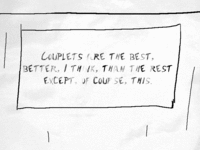 COUPLETS ARE THE BEST,
BETTER, I THINK, THAN THE REST
EXCEPT, OF COURSE, THIS.